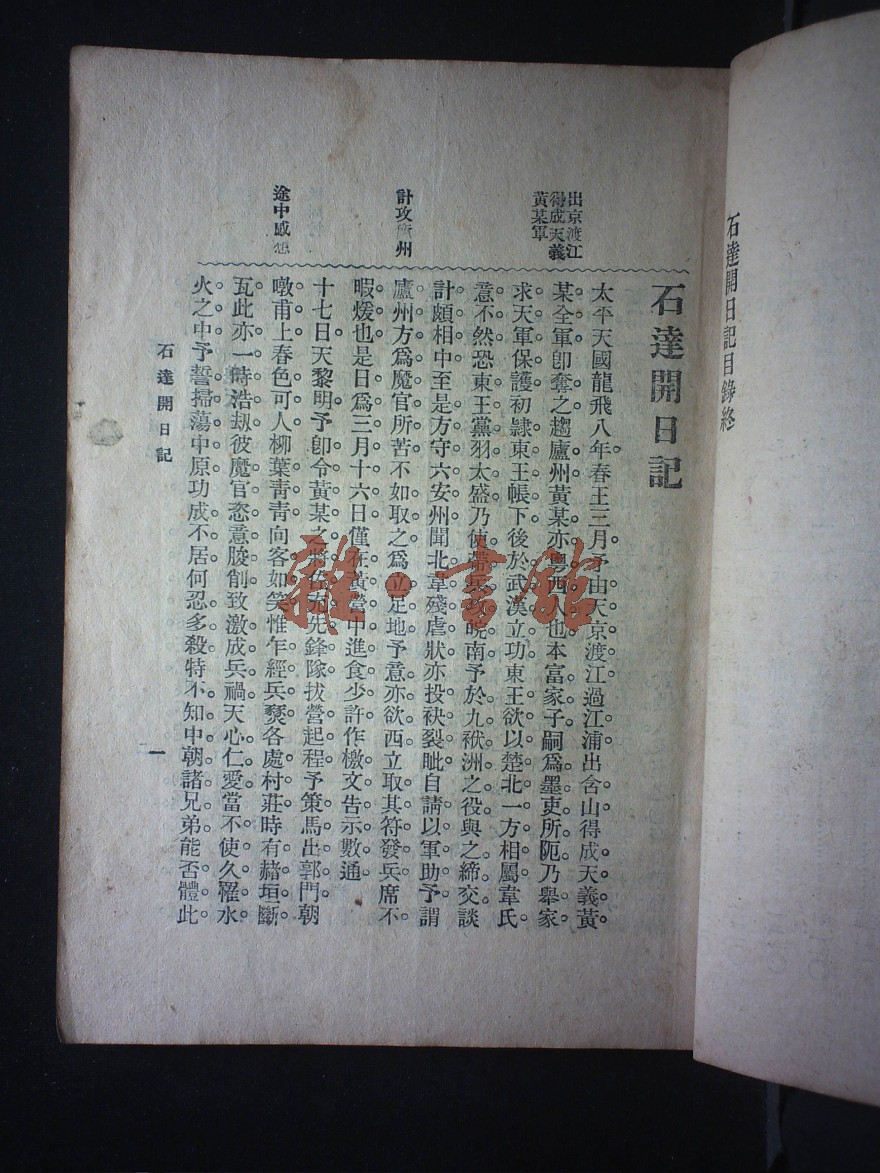 石達開日記目錄終
石達開日記
出京渡江
得成天義
黃某軍
太平天國龍飛八年春王三月予由天京渡江過江浦出含山得成天義黃
某全軍卽奪之趨廬州黃某亦粵西人也本富家子嗣爲墨吏所阨乃舉家
求天軍保護初隸東王帳下後於武漢立功東王欲以楚北一方相屬韋氏
意不然恐東王黨羽太盛乃使帶兵攻皖南予於九洑洲之役與之締交談
計攻州
計頗相中至是方守六安州聞北韋殘虐狀亦投袂裂眦自請以軍助予謂
廬州方爲魔官所苦不如取之爲立足地予意亦欲西立取其符發兵席不
暇煖也是日爲三月十六日僅在黃營中進食少許作檄文告示數通
途中感想
十七日天黎明予卽令黃某之將佐充先鋒隊拔營起程予策馬出郭門朝
暾甫上春色可人柳葉靑靑向客如笑惟乍經兵燹各處村莊時有赭垣斷
瓦此亦一時浩劫彼魔官恣意朘削致激成兵禍天心仁愛當不使久罹水
火之中予誓掃蕩中原功成不居何忍多殺特不知中朝諸兄弟能否體此
石達開日記
一
雜·書館